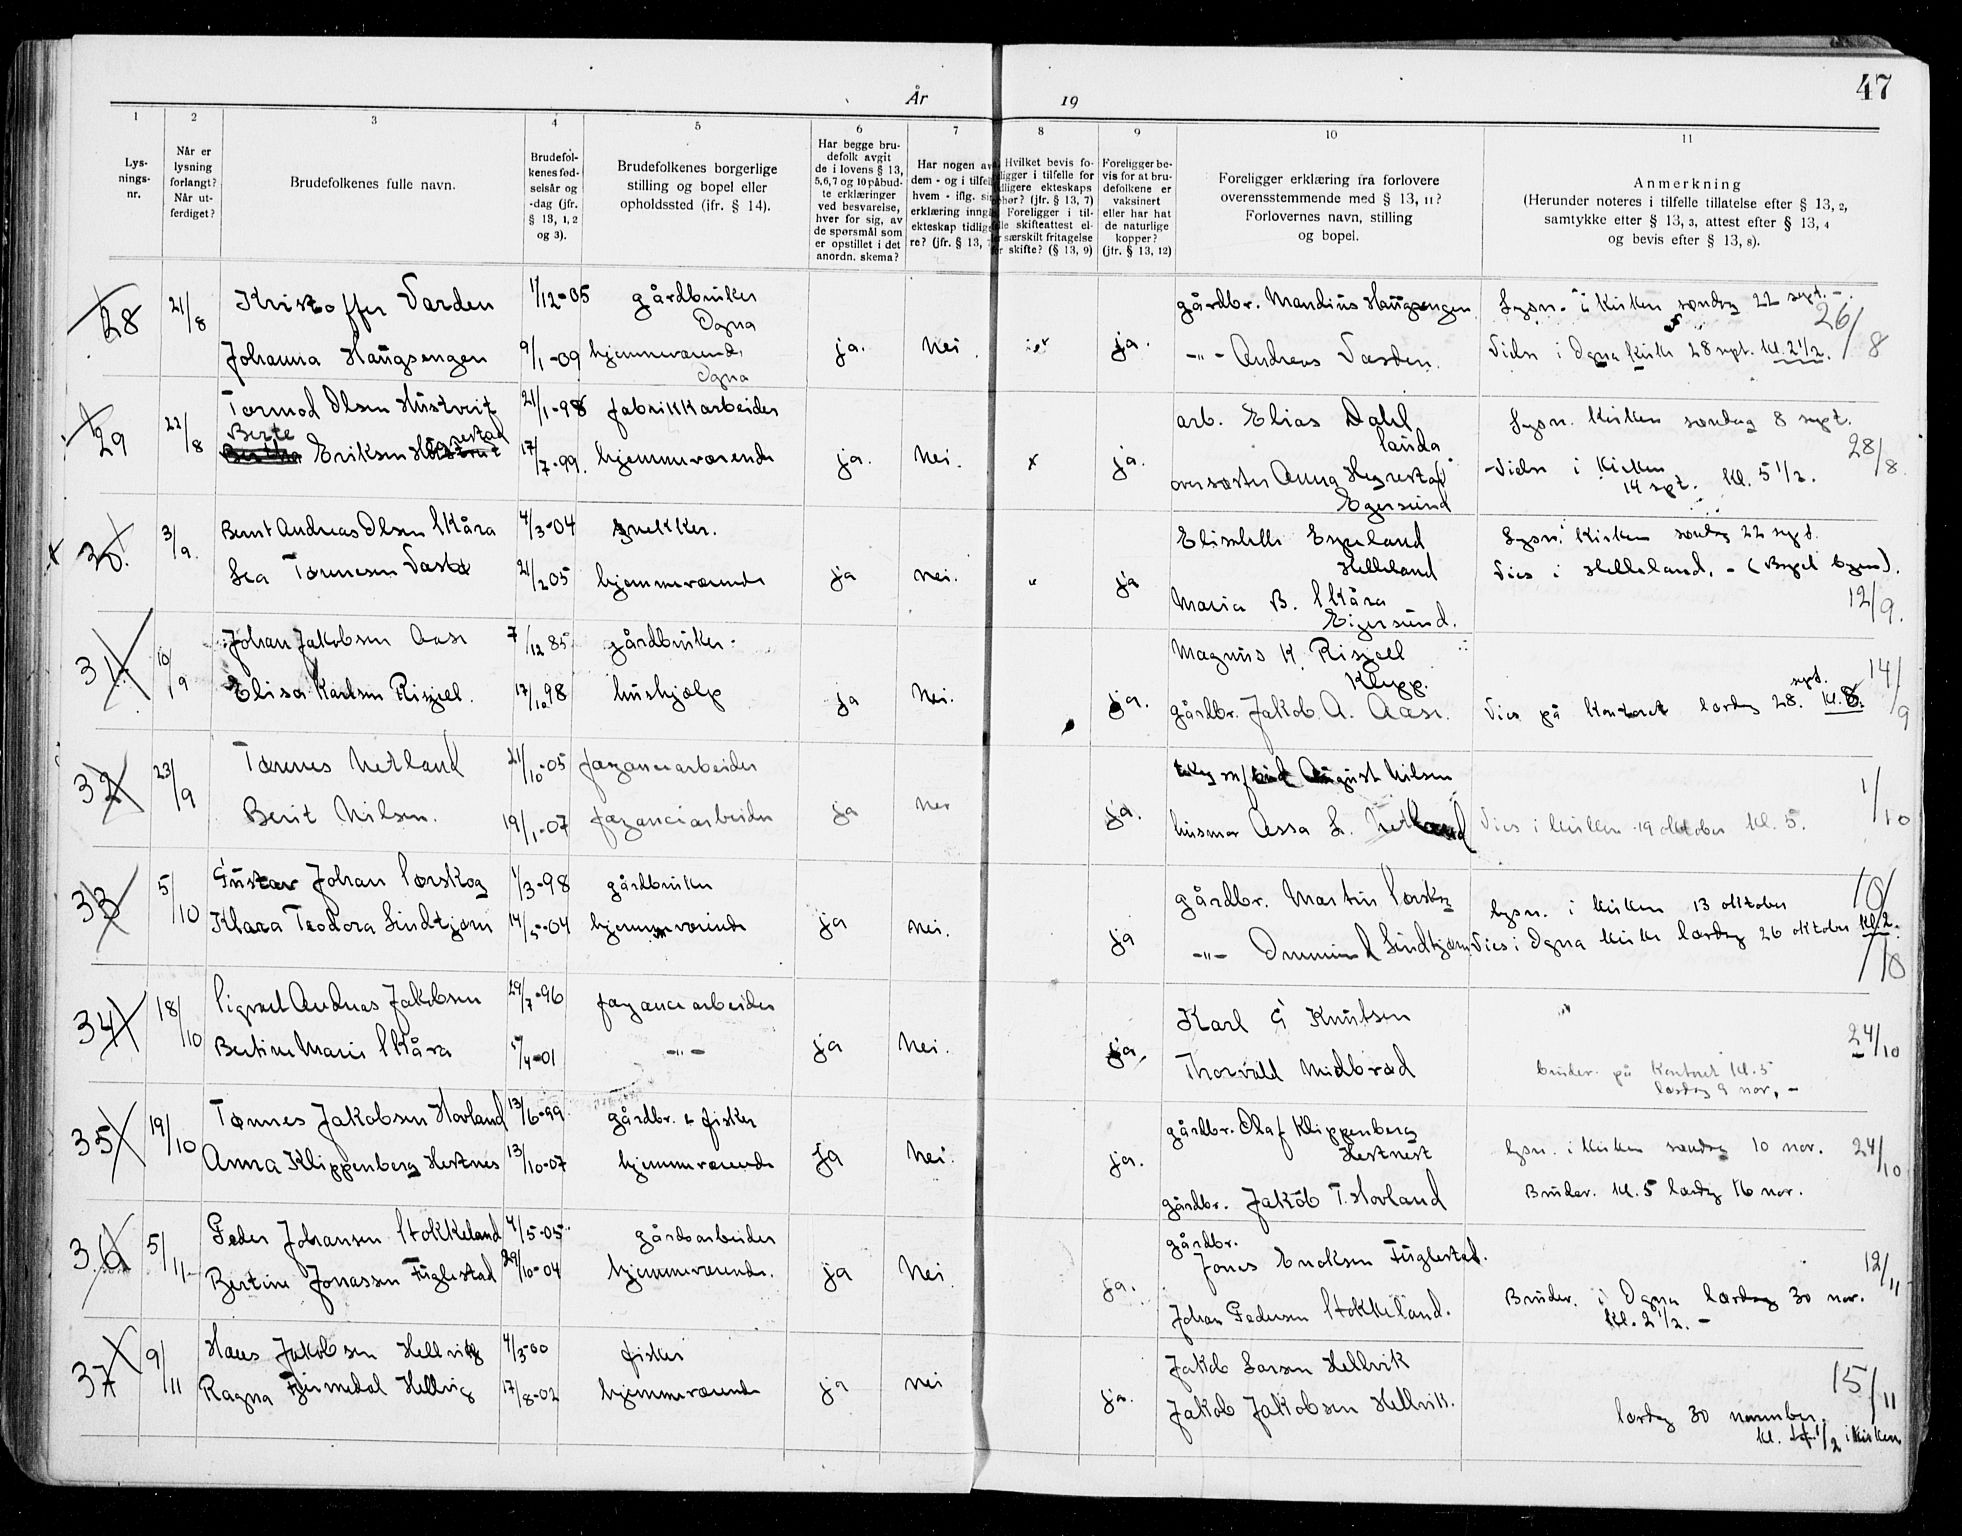 47
År 19
1 2 3 4 5 6 7 8 9 10 11
Lys-
nings-
nr.
Når er
lysning
forlangt?
Når ut-
ferdiget?
Brudefolkenes fulle navn.
Brudefol-
kenes fød-
selsår og
-dag (jfr.
§ 13, 1, 2
og 3).
Brudefolkenes borgerlige
stilling og bopel eller
opholdssted (jfr. § 14).
Har begge bru-
defolk avgit
de i lovens § 13,
5, 6, 7 og 10 påbud-
te erklæringer
ved besvarelse,
hver for sig, av
de spørsmål som
er opstillet i det
anordn. skema?
Har nogen av
dem - og i tilfell
hvem - iflg. si
erklæring inngå
ekteskap tidlige
re? (jfr. § 13,
Hvilket bevis fo-
ligger i tilfelle for
dligere ekteskaps
ophør? (jfr. § 13, 7)
Foreligger i til-
elle skifteattest el-
er særskilt fritagelse
for skifte? (§ 13, 9)
Foreligger be-
vis for at bru-
defolkene er
vaksinert
eller har hat
de naturlige
kopper?
(jfr. § 13, 12)
Foreligger erklæring fra forlovere
overensstemmende med § 13, 11?
Forlovernes navn, stilling
og bopel.
Anmerkning
(Herunder noteres i tilfelle tillatelse efter § 13, 2,
samtykke efter § 13, 3, attest efter § 13, 4
og bevis efter § 13, 8).
28 21/8 Kristoffer Varden 1/12-05 gårdbruker gårdbr. Mandius Haugsengen Lysn. i kirken søndag 22 sept. -
Ogna 26/8
Johanna Haugsengen 9/1-09 hjemmeværende ja. Nei ja. -"- Andreas Varden. Vielse i Ogna kirke 28 sept. kl. 2 1/2.
Ogna
29 22/8 Tormod Olsen Hustveit 21/1-98 fabrikkarbeider arb. Elias Dahl Lysn. kirken søndag 8 sept.
Berte Eriksen Hegrestad 17/7-99. hjemmeværende ja. Nei. x ja. Launda 28/8
oversøster Anna Hegrestad Vielse i kirken
Egersund 14 sept. kl. 5 1/2.
30. 3/9. Bernt Andreas Olsen Skåra 4/3-04 snekker. Elisabeth Egeland Lysn. kirken søndag 22 sept.
Helleland
Lea Tønnesen 21/2 05 hjemmeværende ja nei. " ja Maria B. Skåra Vies i Helleland. -
Eigersund. 12/9.
31 10/9 Johan Jakobsen Aase 7/12 85 gårdbruker. Magnus K. Risjell
Klepp. sept. 14/9
Elisa Karlsen Risjell. 17/10 98 hushjelp ja Nei. ja. gårdbr. Jakob A. Aase. Vies på kontoret lørdag 28. kl. 6.
32 23/9 Tønnes Netland 21/10-05 fayancearbeider August Nilsen 1/10
Berit Nilsen. 19/1-07 fayancearbeider ja nei ja. husmor Assa L. Netland Vies i kirken 19 oktober kl. 5.
33 5/10 Gustav Johan Sørskog 1/3-98 gårdbruker gårdbr. Martin Sørskog lysn. i kirken 13 oktober 10/10
Klara Teodora Lindtjørn 14/5-04 hjemmeværende ja nei. ja -"- Ommund Lindtjørn Vies i Ogna kirke lørdag 26 oktober kl. 2.
34 18/10 Sigvart Andreas Jakobsen 29/7-96 fayancearbeider Karl G Knutsen 24/10
Bertine Marie Skåra 5/4-01 -"- ja Nei. ja. Thorvald Midbrød bruder. på kontoret kl. 5
lørdag 9 nov. -
35 19/10 Tønnes Jakobsen Hovland 13/6-99 gårdbr. & fisker gårdbr. Olaf Klippenberg lysn. i kirken søndag 10 nov. 24/10
Hestnest
Anna Klippenberg Hestnes 13/10-07 hjemmeværende ja Nei. ja. gårdbr. Jakob T. Hovland Bruder. kl. 5 lørdag 16 nov.
36 5/11 Peder Johansen Stokkeland 4/5-05 gårdsarbeider gårdbr. 12/11
Jonas Enoksen Fuglestad.
Bertine Jonassen Fuglestad 29/10-04 hjemmeværende. ja Nei. ja. Johan Pedersen Stokkeland. Bruder. i Ogna lørdag 30 nov.
kl. 2 1/2. -
37 9/11 Hans Jakobsen Hellvik 4/3-00 fisker Jakob Larsen Hellvik 15/11
Ragna Hellvig 17/8-02 hjemmeværende ja nei ja. Jakob Jakobsen Hellvik. lørdag 30 november.
kl. 1/2 i kirken